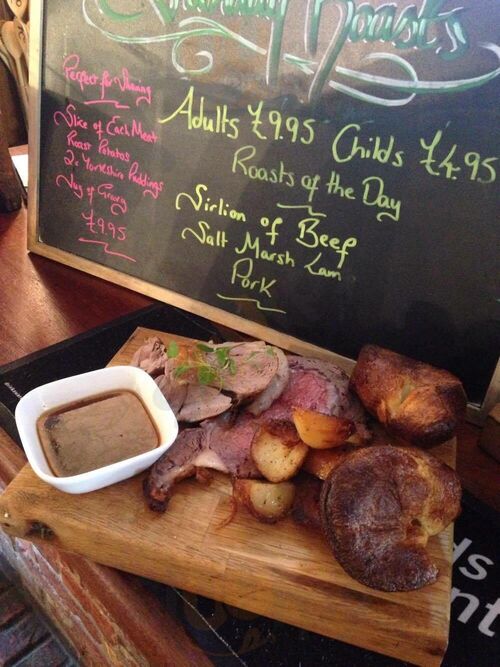 Roasts
Perfect for Sharing
Slice of Each Meat
Roast Potatos
2x Yorkshire Puddings
Jug of Gravy
£9.95
Adults £9.95 Childs £4.95
Roasts of the Day
Sirlion of Beef
Salt Marsh Lam
Pork